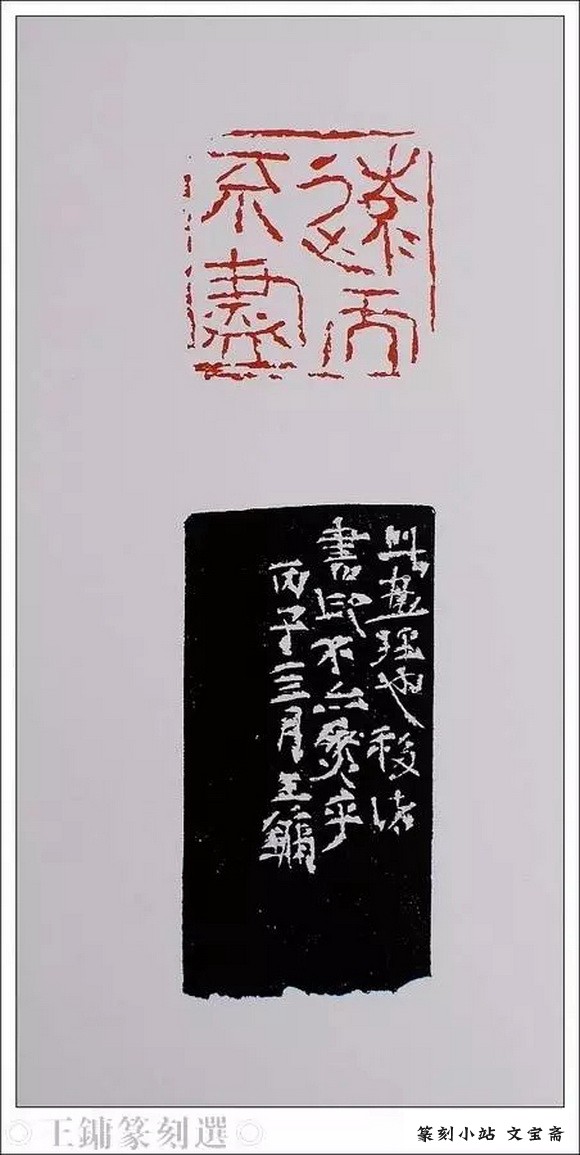 遠而
不盡
此畫理也移諸
書印不亦然乎
丙子三月王鏞
王鏞篆刻選
篆刻小站 文宝斋